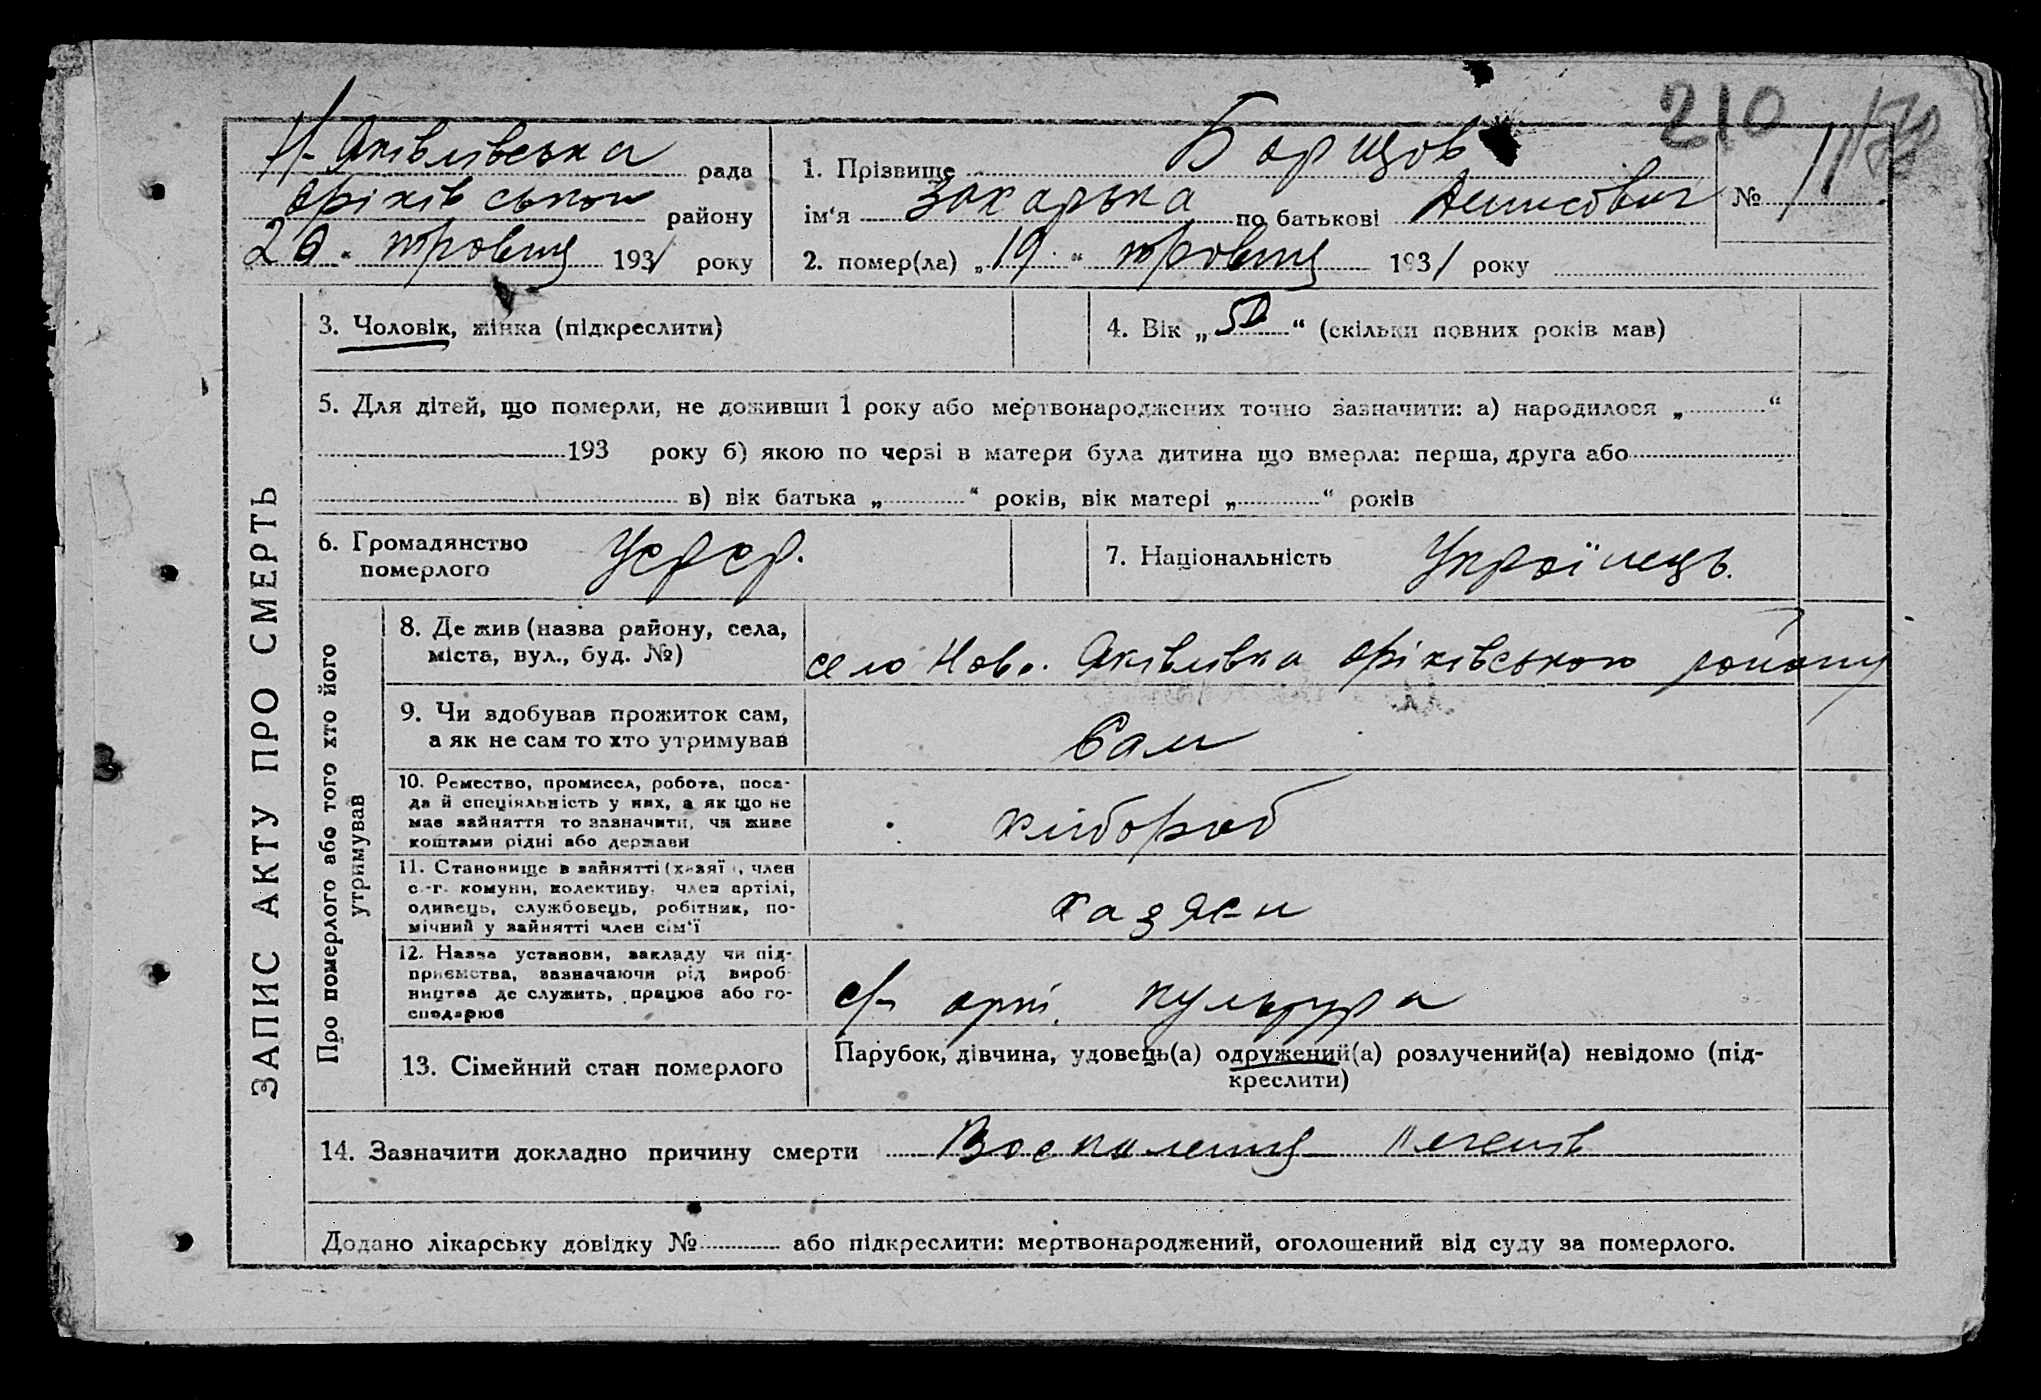 210
Н-Яківлівська рада
Оріхівського району
20 " травня 1931 року
1. Прізвище Борщов
ім‘я Захарька по батькові Денисович
№ 11
2. помер(ла) „ 19 " травня 1931 року
ЗАПИС АКТУ ПРО СМЕРТЬ
3. Чоловік, жінка (підкреслити)
4. Вік „ 50 “ (скільки повних років мав)
5. Для дітей, що померли, не доживши 1 року або мертвонароджених точно зазначити: а) народилося „ “
193 року б) якою по черзі в матери була дитина що вмерла: перша, друга або
в) вік батька „ “ років, вік матері „ “ років
6. Громадянство
померлого
Усрср.
7. Національність Украінець.
Про померлого або того хто його
утримував
8. Де жив (назва району, села,
міста, вул., буд. №)
село Ново. Яківлівка оріхівського району
9. Чи здобував прожиток сам,
а як не сам то хто утримував
Сам
10. Ремество, промисел, робота, поса-
да й специяльність у них, а як що не
має зайняття то зазначити, чи живе
коштами рідні або держави
хлібороб
11. Становище в зайнятті (хазяї , член
с.-г. комуни, колективу, член артілі,
одинець, службовець, робітник, по-
мічний у зайнятті член сім‘ї
12. Назва установи, закладу чи під-
приємства, зазначаючи рід вироб-
ництва де служить, працює або го-
сподарює
с/г арт. культура
13. Сімейний стан померлого
Парубок, дівчина, удовець(а) одружений(а) розлучений(а) невідомо (під-
креслити)
14. Зазначити докладно причину смерти Воспаления легенів
Додано лікарську довідку № або підкреслити: мертвонароджений, оголошений від суду за померлого.